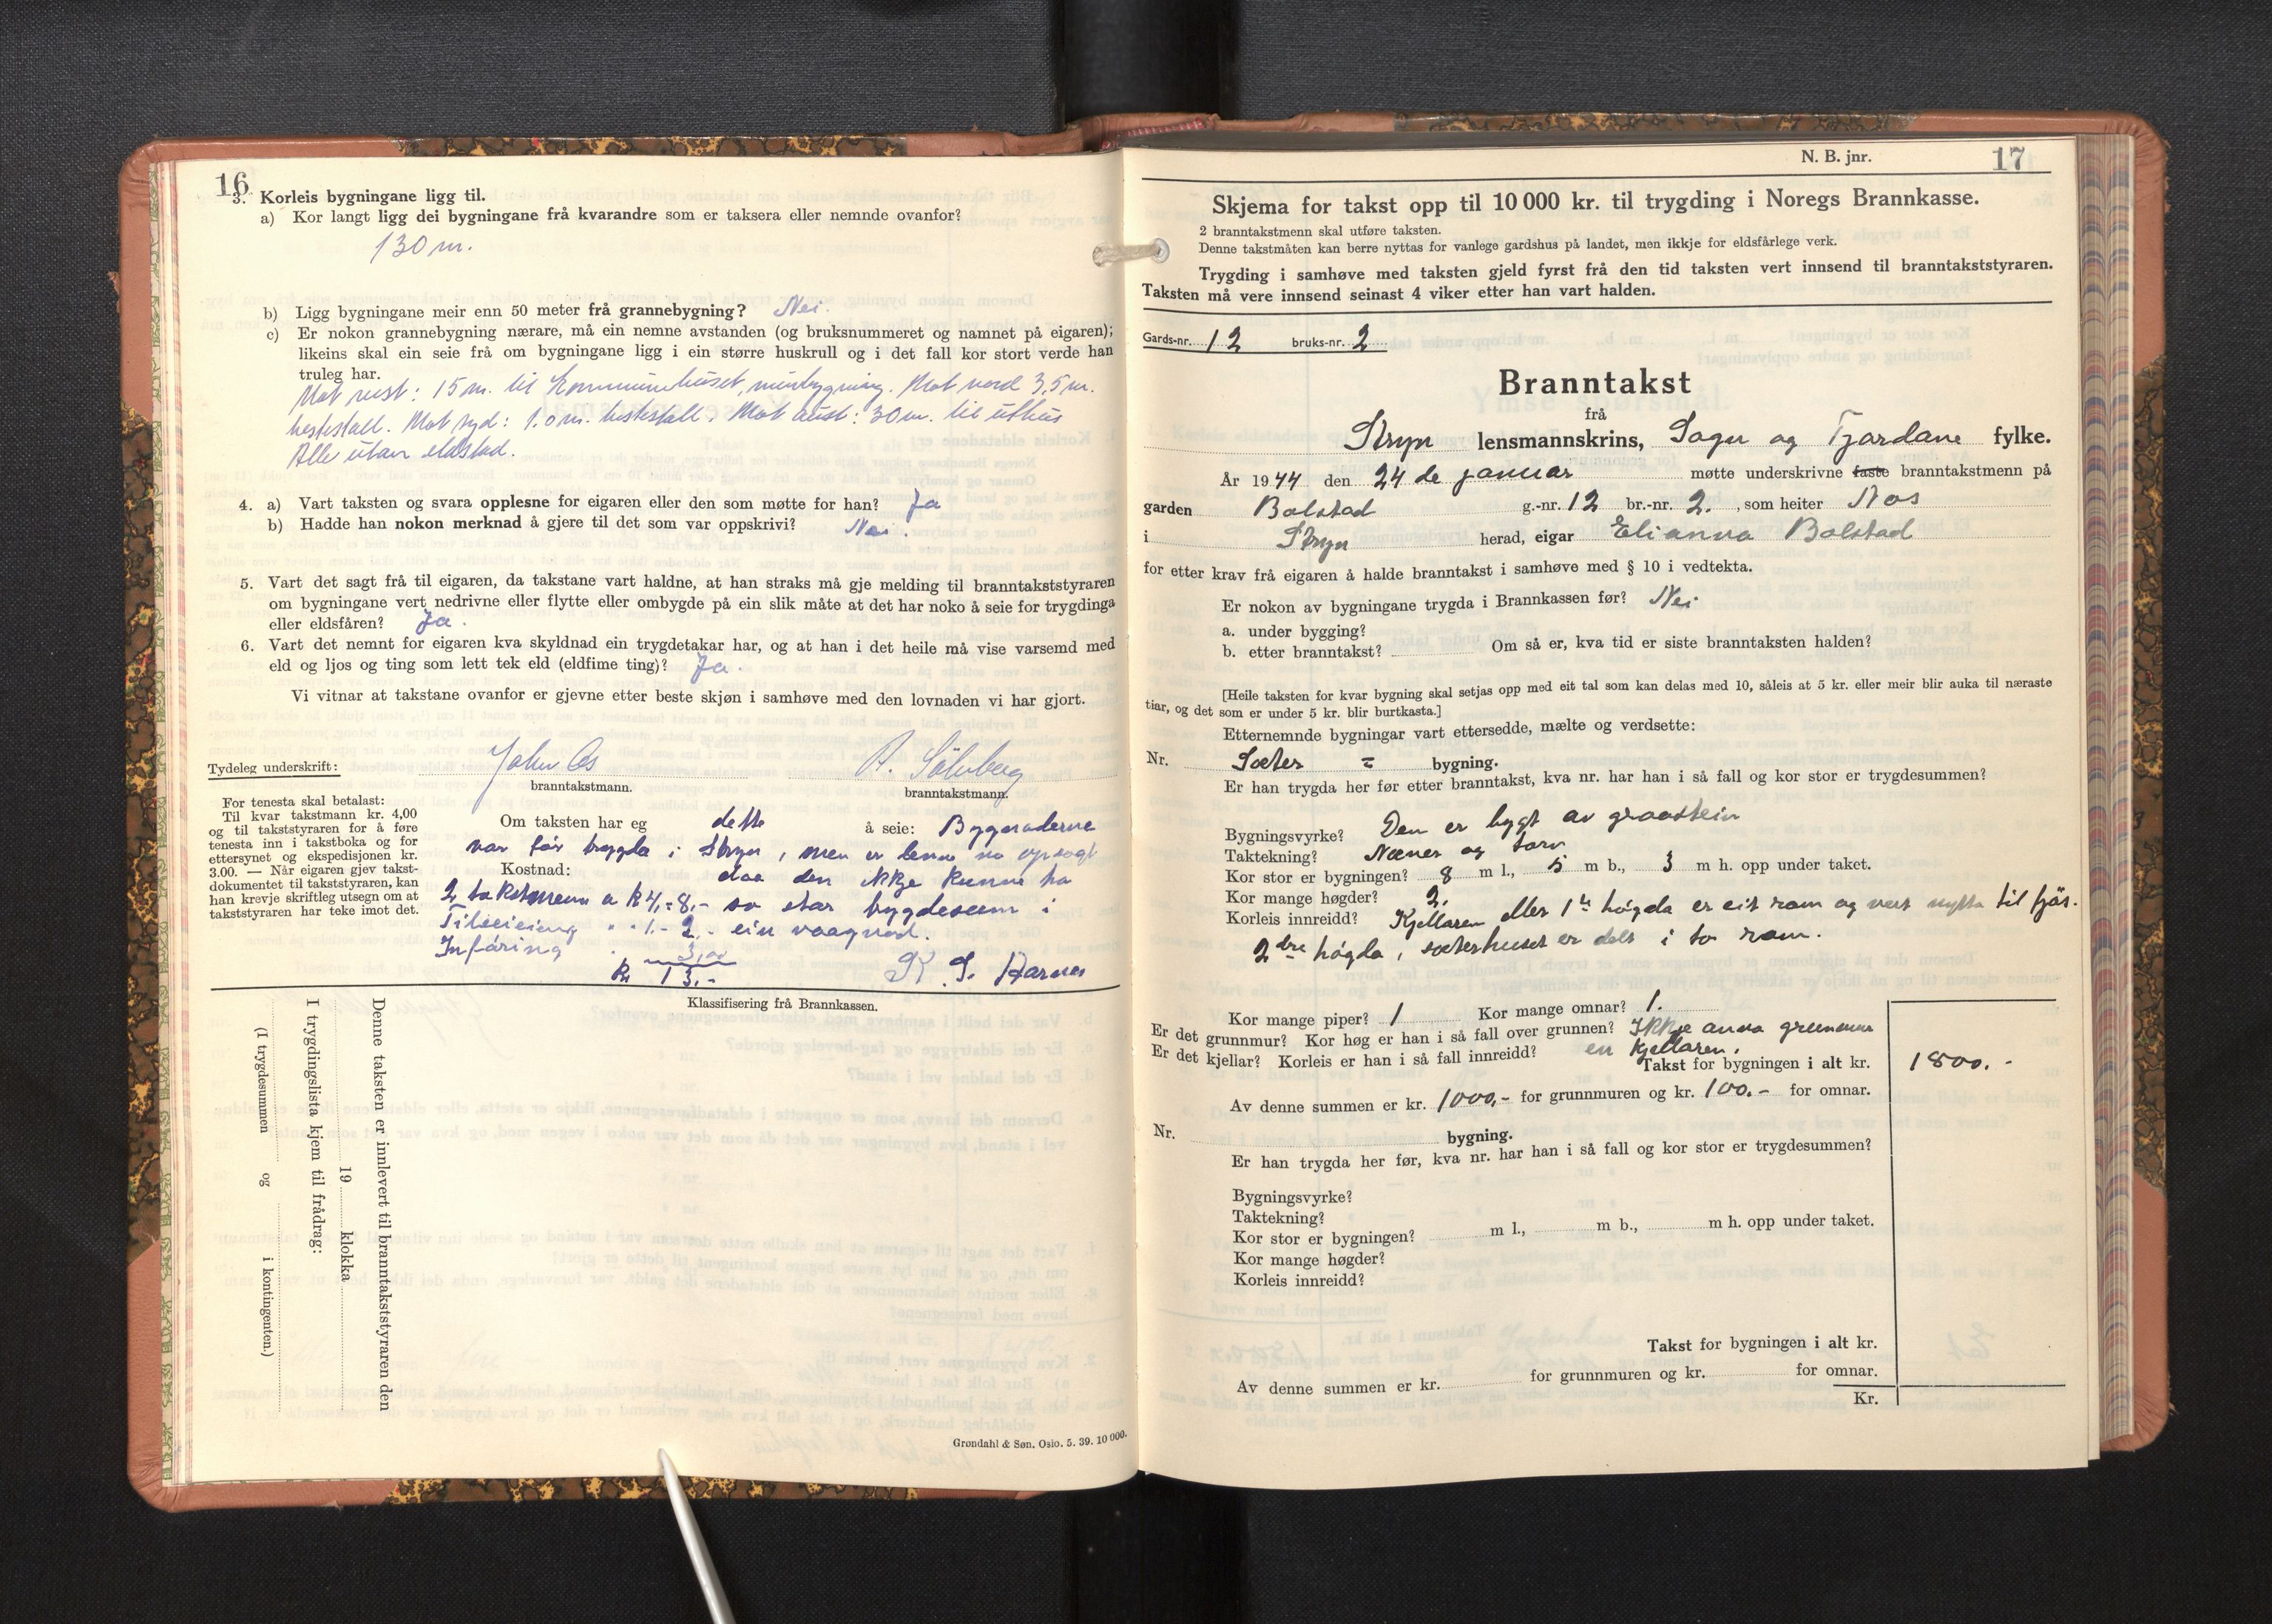 16
3. Korleis bygningane ligg til.
a) Kor langt ligg dei bygningane frå kvarandre som er taksera eller nemnde ovanfor?
130 m.
b) Ligg bygningane meir enn 50 meter frå grannebygning? Nei.
c) Er nokon grannebygning nærare, må ein nemne avstanden (og bruksnummeret og namnet på eigaren);
likeins skal ein seie frå om bygningane ligg i ein større huskrull og i det fall kor stort verde han
truleg har.
Mot vest: 15 m. til kommunehuset, murbygning. Mot nord 3,5 m.
hestestall. Mot syd: 1.0 m. hestestall. Mot aust: 30 m. til uthus
Alle utan eldstad.
4. a) Vart taksten og svara opplesne for eigaren eller den som møtte for han? Ja
b) Hadde han nokon merknad å gjere til det som var oppskrivi? Nei.
5. Vart det sagt frå til eigaren, da takstane vart haldne, at han straks må gje melding til branntakststyraren
om bygningane vert nedrivne eller flytte eller ombygde på ein slik måte at det har noko å seie for trygdinga
eller eldsfåren? Ja.
6. Vart det nemnt for eigaren kva skyldnad ein trygdetakar har, og at han i det heile må vise varsemd med
eld og ljos og ting som lett tek eld (eldfime ting)? Ja.
Vi vitnar at takstane ovanfor er gjevne etter beste skjøn i samhøve med den lovnaden vi har gjort.
Tydeleg underskrift: John Os A. Sölvberg
branntakstmann. branntakstmann.
For tenesta skal betalast:
Til kvar takstmann kr. 4,00
og til takststyraren for å føre
tenesta inn i takstboka og for
ettersynet og ekspedisjonen kr.
3.00. — Når eigaren gjev takst-
dokumentet til takststyraren, kan
han krevje skriftleg utsegn om at
takststyraren har teke imot det.
Om taksten har eg dette å seie:
var før trygda i Stryn, men er no
Kostnad: daa den ikkje kunne ha
2 takstmenn a k 4,- 8,- so stor trygdesum i
1.- 2.- ein vaagnad.
Inføring 3,00
Kr 13.-
Klassifisering frå Brannkassen.
Denne taksten er innlevert til branntakststyraren den
19 klokka
I trygdingslista kjem til frådrag:
(I trygdesummen og i kontingenten.)
Grøndahl & Søn. Oslo. 5. 39. 10 000.
N. B. jnr. 17
Skjema for takst opp til 10 000 kr. til trygding i Noregs Brannkasse.
2 branntakstmenn skal utføre taksten.
Denne takstmåten kan berre nyttas for vanlege gardshus på landet, men ikkje for eldsfårlege verk.
Trygding i samhøve med taksten gjeld fyrst frå den tid taksten vert innsend til branntakststyraren.
Taksten må vere innsend seinast 4 viker etter han vart halden.
Gards-nr. 12 bruks-nr. 2
Branntakst
frå
Stryn lensmannskrins, Sogn og Fjordane fylke.
År 1944 den 24 de januar møtte underskrivne faste branntakstmenn på
garden Bolstad g.-nr. 12 br.-nr. 2. , som heiter Nos
i Stryn herad, eigar Elianna Bolstad
for etter krav frå eigaren å halde branntakst i samhøve med § 10 i vedtekta.
Er nokon av bygningane trygda i Brannkassen før? Nei
a. under bygging?
b. etter branntakst? Om så er, kva tid er siste branntaksten halden?
[Heile taksten for kvar bygning skal setjas opp med eit tal som kan delas med 10, såleis at 5 kr. eller meir blir auka til næraste
tiar, og det som er under 5 kr. blir burtkasta.]
Etternemnde bygningar vart ettersedde, mælte og verdsette:
Nr. Sæter = bygning.
Er han trygda her før etter branntakst, kva nr. har han i så fall og kor stor er trygdesummen?
Bygningsvyrke? Den er bygt av graastein
Taktekning? Næver og torv
Kor stor er bygningen? 8 m l., 5 m b., 3 m h. opp under taket.
Kor mange høgder? 2.
Korleis innreidd? Kjellaren eller 1ste høgda er eit rom og vert nytta til fjøs.
2dre høgda, sæterhuset er delt i to rom.
Kor mange piper? 1 Kor mange omnar? 1.
Er det grunnmur? Kor høg er han i så fall over grunnen? Ikkje anna grunnmur
Er det kjellar? Korleis er han i så fall innreidd? en kjellaren.
Takst for bygningen i alt kr. 1800.-
Av denne summen er kr. 1000,- for grunnmuren og kr. 100.- for omnar.
Nr. bygning.
Er han trygda her før, kva nr. har han i så fall og kor stor er trygdesummen?
Bygningsvyrke?
Taktekning?
Kor stor er bygningen? m l., m b., m h. opp under taket.
Kor mange høgder?
Korleis innreidd?
Takst for bygningen i alt kr.
Av denne summen er kr. for grunnmuren og kr. for omnar.
Kr.